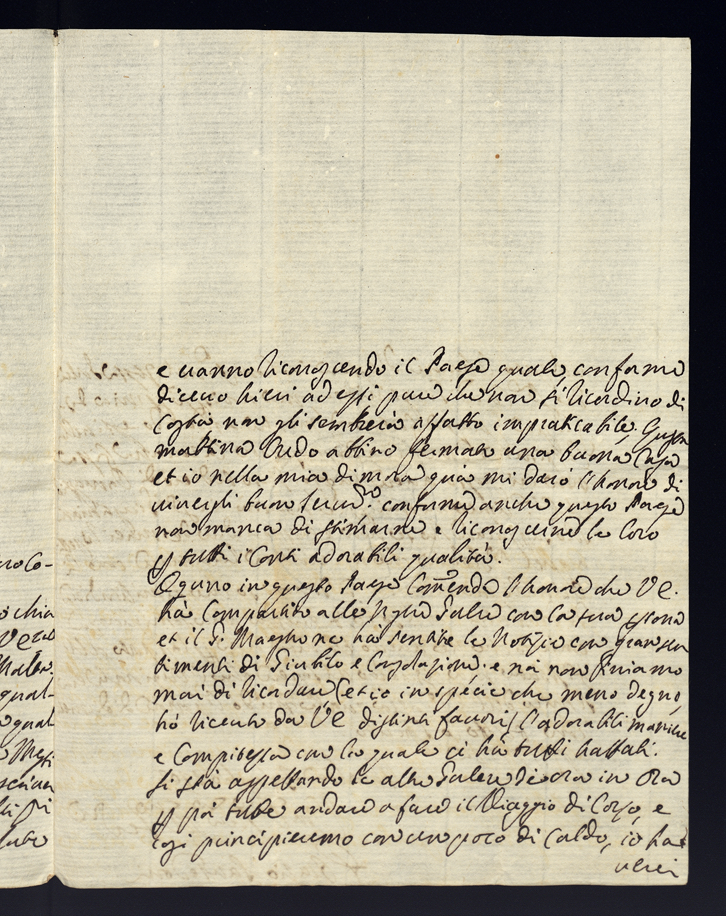 e vanno riconoscendo il Paese quale conforme
dicevo hieri ad essi pure che non si ricordino di
Costà non gli sembrerà affatto impraticabile. Questa
mattina credo abbino fermata una buona Casa
et io nella mia dimora quà mi darò l'honore di
vivergli buon Serv.re conforme anche questo Paese
non manca di stimarne e riconoscerne le loro
p tutti i Conti adorabili qualità.
Oguno in questo Paese Comenda l'honore che VE.
hà Compartito alle Nre Galere con la sua
et il S. Maestro ne ha sentite le Notizie con gran sen
timenti di Giubilo e Consolazione. e noi non finiamo
mai di ricordare (et io in specie che meno degno
hò ricevuto da VE distinti favori) l'adorabili maniere
e Compitezza con le quale ci hà tutti trattati.
Si stà aspettando le altre Galere di ora in ora
p poi tutte andare a fare il Viaggio di Corso, e
cosi principieremo con un poco di Caldo, io ha
verei
ro Co-
chia
VE
qual
qual